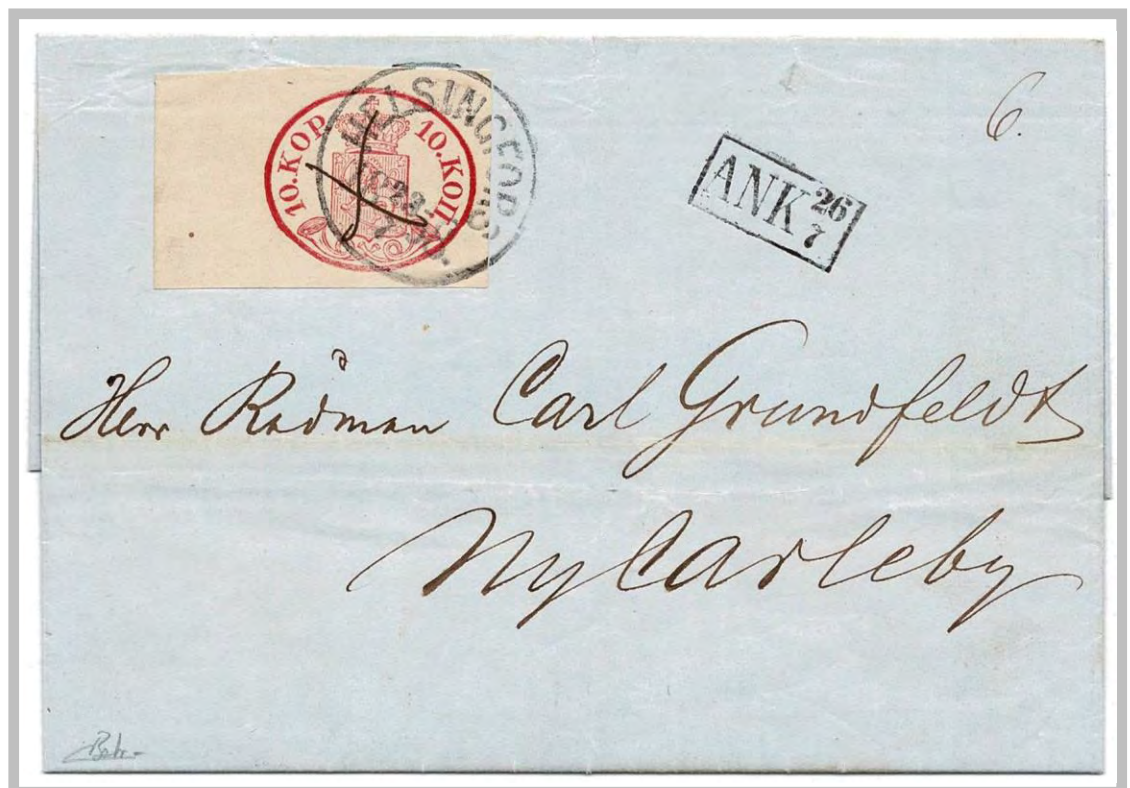 10.KOP 10.КОП.
HELSINGFORS
6.
ANK 26/7
Herr Rådman Carl Grundfeldt
Ny Carleby